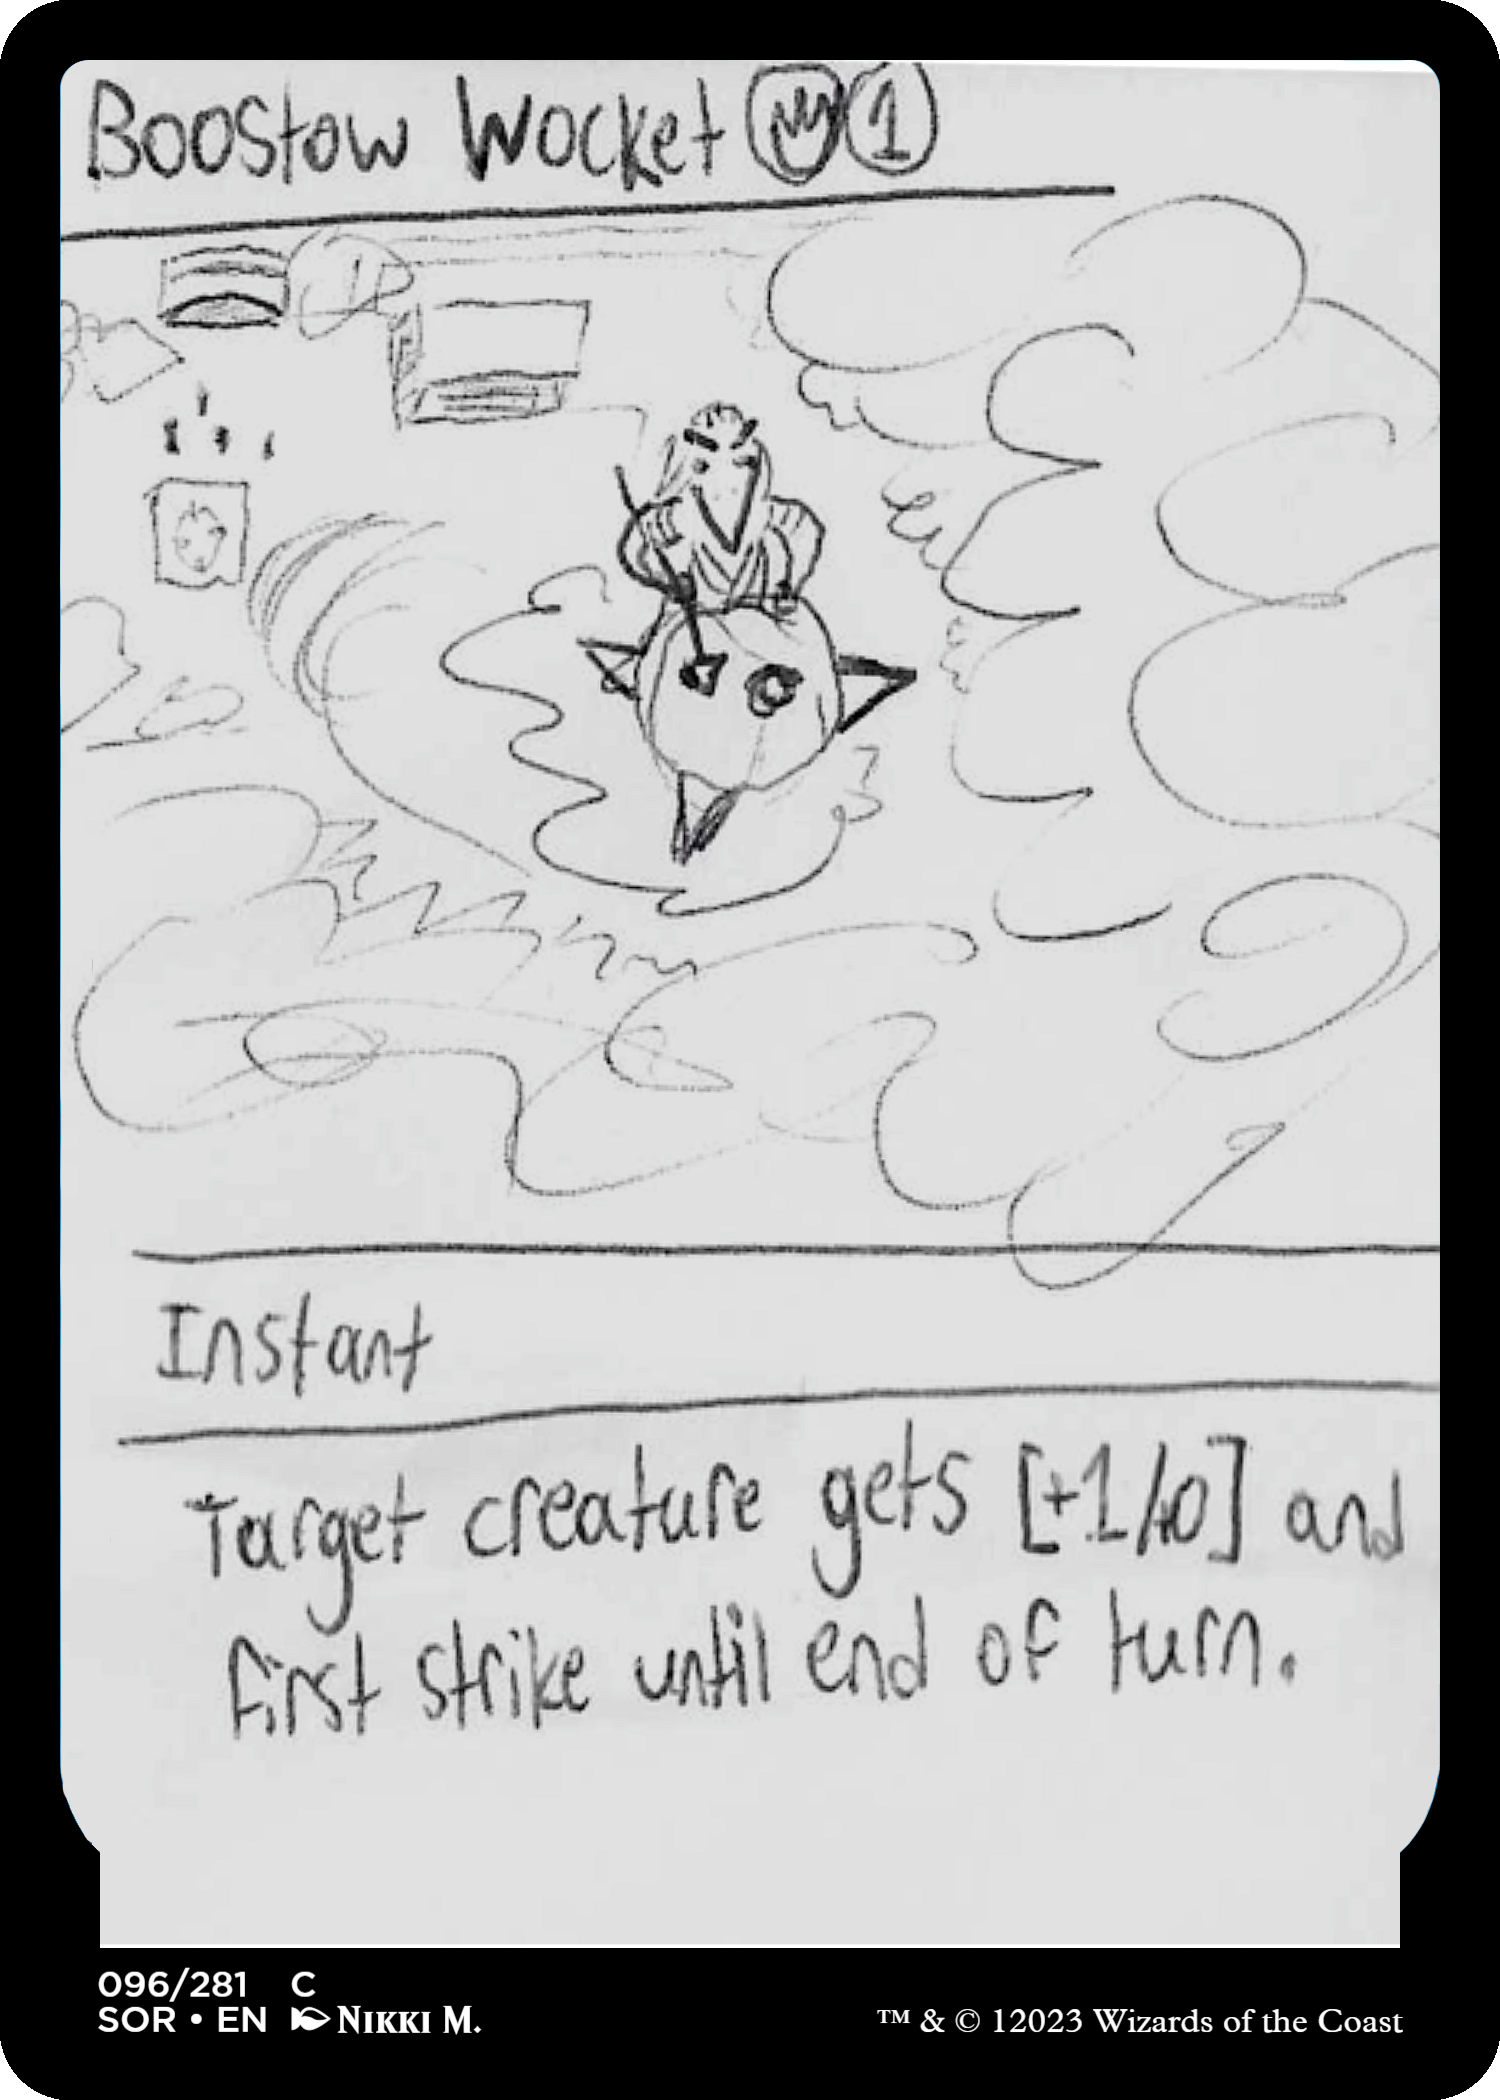 Boostow Wocket 1
Instant
Target creature gets [+1/+0] and
first strike until end of turn.
096/281 C
SOR • EN NIKKI M.
™ & © 12023 Wizards of the Coast